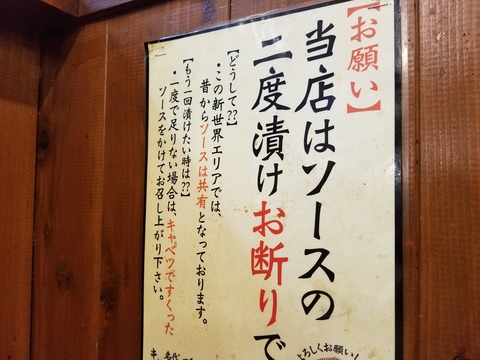 【お願い】
当店はソースの
二度漬けお断りで
【どうして??】
・この新世界エリアでは、
昔からソースは共有となっております。
【もう一回漬けたい時は??】
・一度で足りない場合は、キャベツですくった
ソースをかけてお召し上がり下さい。
よろしくお願い